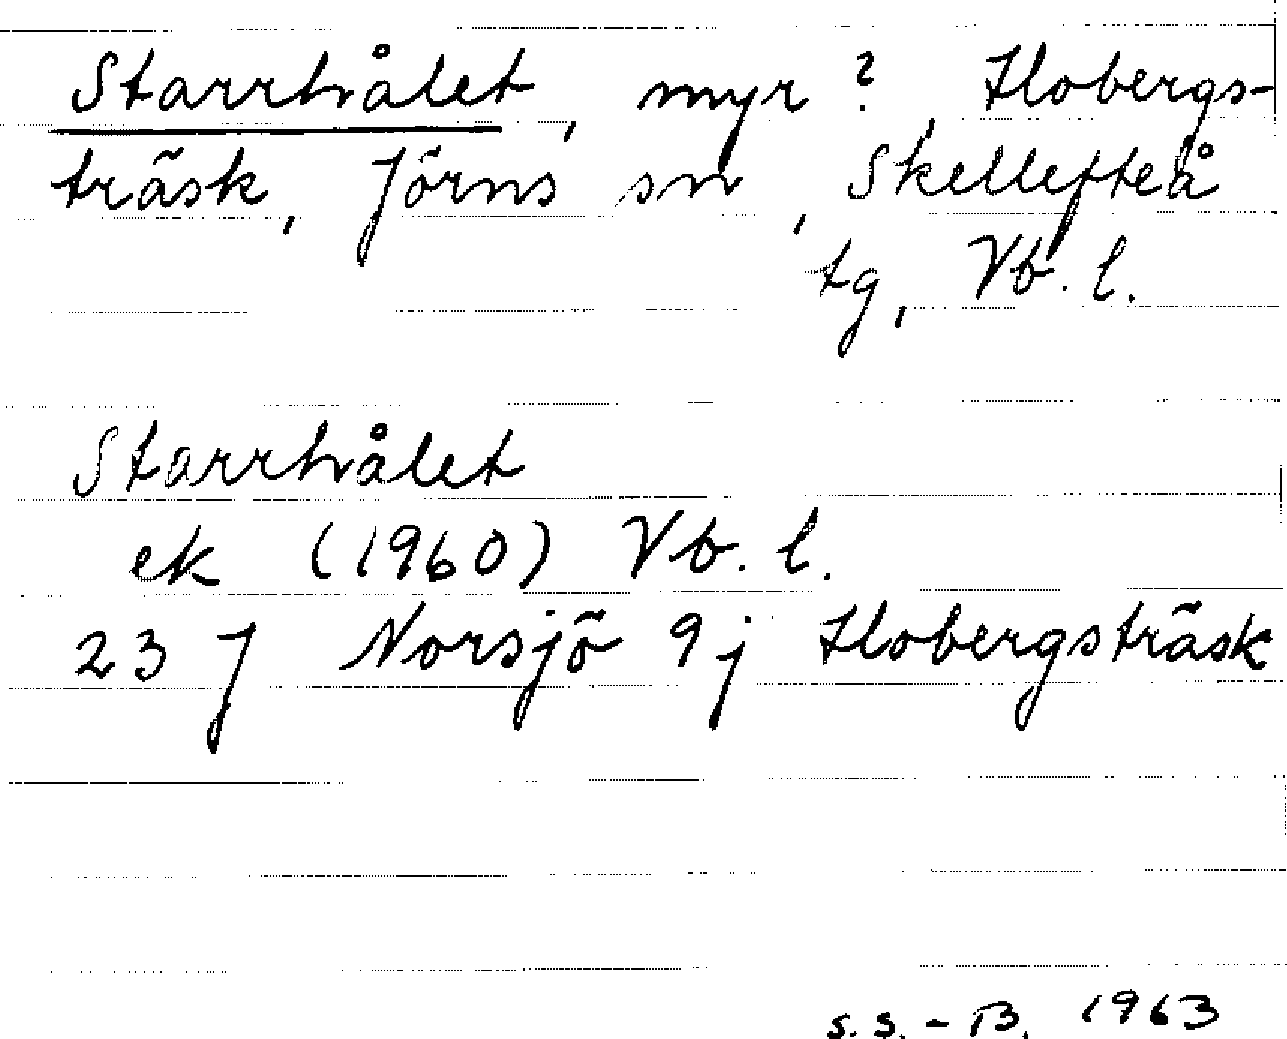 Starrhålet, myr?, Hobergs-
träsk, Jörns sn, Skellefteå
tg, Vb. l.
Starrhålet
ek (1960) Vb. l.
23 J Norsjö 9j Hobergsträsk
S.S.-B. 1963